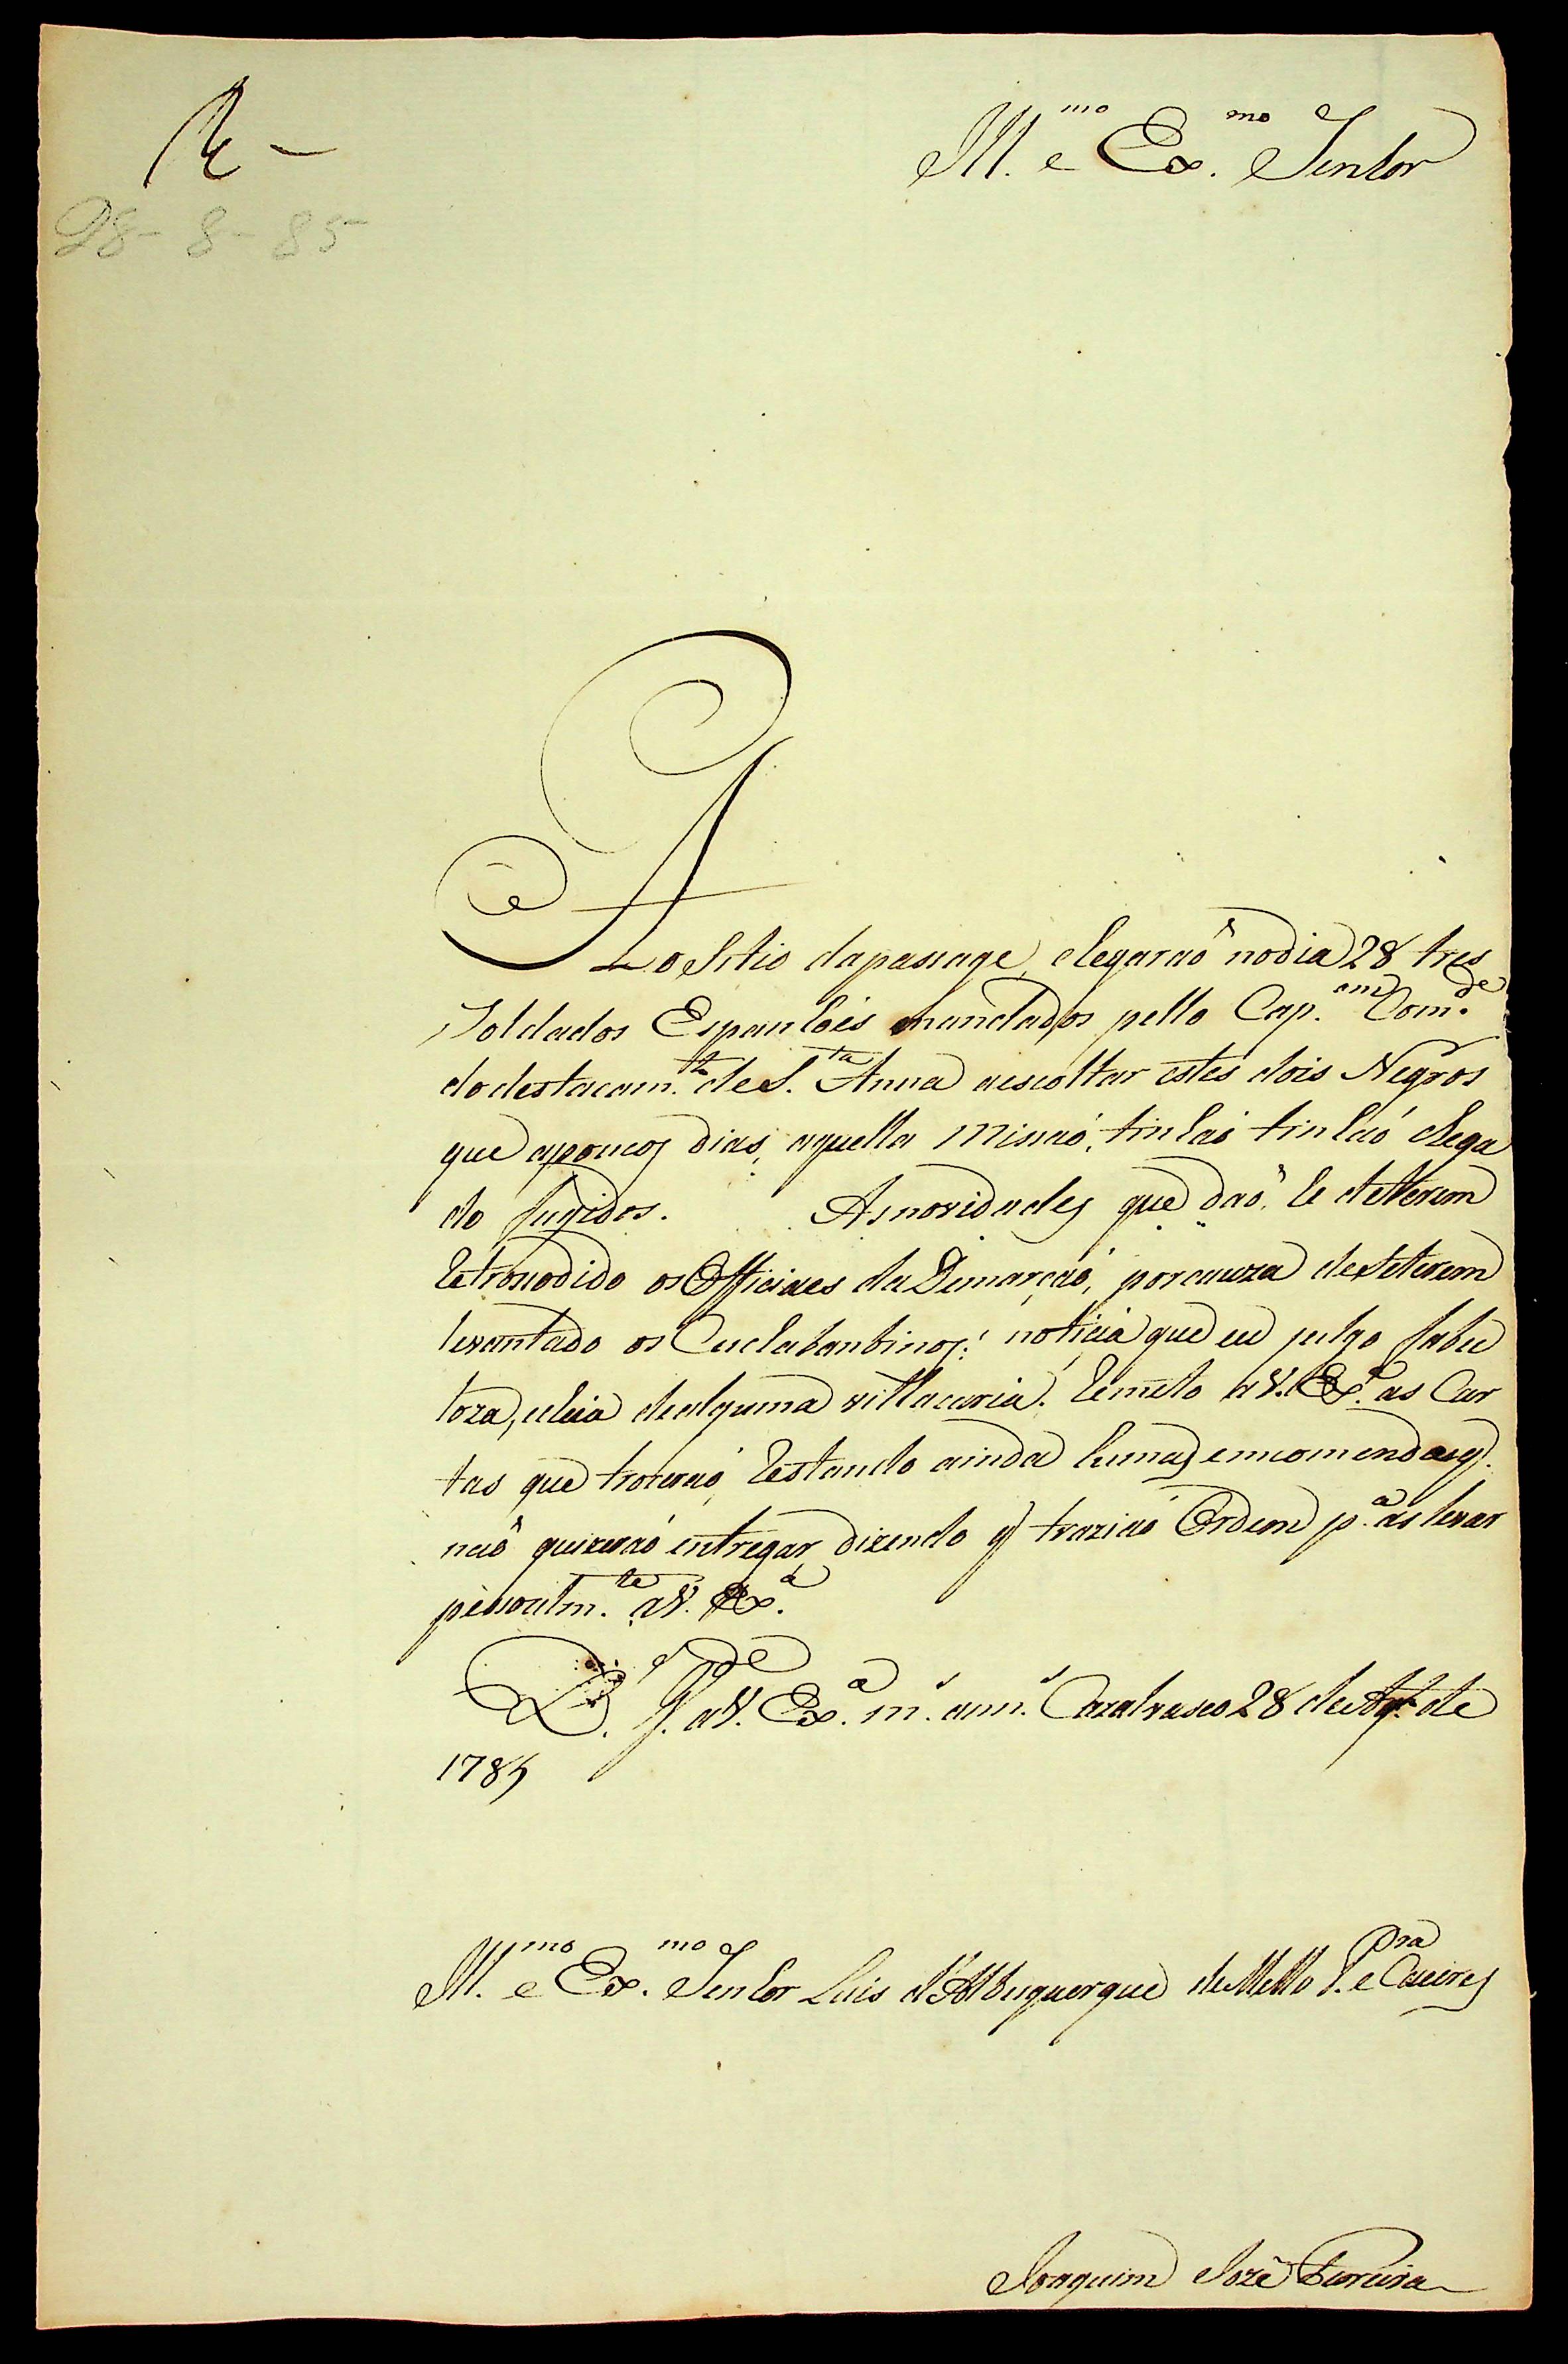 Re
28-8-85
Ill.mo e Ex.mo Senhor
Ao Sitio dapassage, chegaraõ nodia 28 tres
Soldados Espanhóes mandados pello Cap.am Com.de
dodestacam.to de S.ta Anna aescoltar estes dois Negros
que apoucos dias, aquella Missaó, tinhaó tinhaó chega
do fugidos. Asnovidades que daõ, he deterem
retrosodido os Officiaes da Demarcaó, porcauza deseterem
levantado os Cuchabanbinos: noticia que eu julgo fabu
loza, e cheia dealguma vellacaria. Remeto a V. Ex.a as Car
tas que troxeraó, restando ainda humas emcomendas q
naõ quizeraó entregar, dizendo q traziaó Ordem p.a as levar
pessoalm.te a V. Ex.a
D.s g.de a V. Ex.a m.s ann.s Cazalvasco 28 de Ag.to de
1785
Ill.mo e Ex.mo Senhor Luis d'Albuquerque deMello P.ra e Caceres
Joaquim Jozé Ferreira